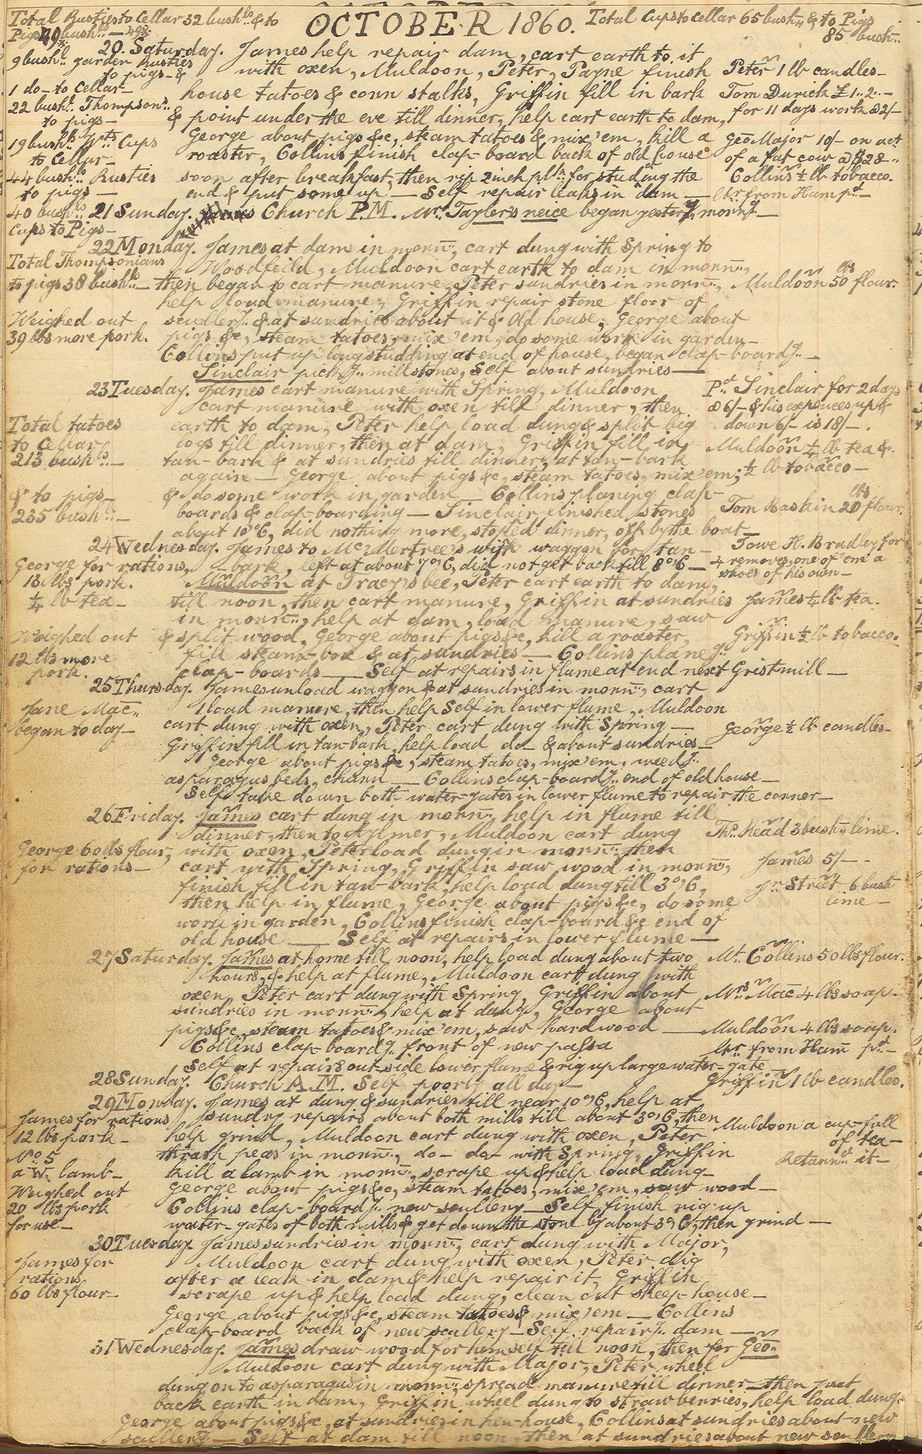 Total Rusties to Cellar 32 bushls & to
Pigs 49 bushls —
OCTOBER 1860.
Total Cups to Cellar 65 bushls & to Pigs
85 bushls
20 Saturday. James help repair dam, cart earth to it
9 bushls garden Rusties
to pigs - &
with oxen, Muldoon, Peter, Payne finish
Peter 1 lb candles —
1 do - to Cellar -
house tatoes & corn stalks, Griffin fill in bark
Tom Durick £1..2..-
22 bushls Thompsons
to pigs —
& point under the eve till dinner, help cart earth to dam,
for 11 days work @ 2/-
19 bushls Cups
to Cellar -
George about pigs &c, steam tatoes & mix'em, kill a
Geo Major 10/- on act
roaster, Collins finish clap-board back of old house
of a fat cow @ $28 -
44 bushls Rusties
to pigs —
soon after breakfast, then rip 2 inch plk for studing the
Collins ½ lb tobacco.
end & put some up — Self repair leaks in dam —
ltr from Ham pd —
40 bushls
Cups to Pigs -
21 Sunday. Church P.M. Mrs Tayler's neice began yestery morng —
22 Monday. James at dam in morng, cart dung with Spring to
Total Thompsonians
to pigs 38 bushls —
Woodfeild, Muldoon cart earth to dam in morng,
then began to cart manure, Peter sundries in morng,
Muldoon 50 lbs flour.
help load manure, Griffin repair stone floor of
Weighed out
39 lbs more pork.
scullery & at sundries about it & old house, George about
pigs &c, steam tatoes, mix 'em, do some work in garden —
Collins put up long studding at end of house, began clap-boardg —
Sinclair pickg millstones, Self about sundries —
23 Tuesday. James cart manure with Spring, Muldoon
Pd Sinclair for 2 days
cart manure with oxen till dinner, then
@ 6/- & his expences up &
Total tatoes
to Cellar
213 bushls —
earth to dam, Peter help load dung & split big
down 6/- is 18/-.
logs till dinner, then at dam, Griffin fill in
Muldoon ¼ lb tea &
tan-bark & at sundries till dinner, at tan-bark
½ lb tobacco —
again — George about pigs &c, steam tatoes, mix 'em,
& to pigs —
235 bushls —
& do some work in garden — Collins planing clap-
boards & clap-boarding — Sinclair finished stones
Tom Haskin 20 lbs flour.
about 10 o'c, did nothing more, stoped dinner, off by the boat —
24 Wednesday. James to McMertree's with waggon for tan-
I owe H. Bradley for
George for rations,
18 lbs pork.
¼ lb tea —
bark, left at about 7 o'c, did not get back till 8 o'c —
4 removes, one of em a
shoe of his own —
Muldoon at Tracey's bee, Peter cart earth to dam
till noon, then cart manure, Griffin at sundries
James ½ lb tea.
in morng, help at dam, load manure, saw
Weighed out
12 lbs more
pork.
& split wood, George about pigs &c, kill a roaster,
Griffin ½ lb tobacco.
fill steam-box & at sundries — Collins planeg
clap-boards — Self at repairs in flume at end next Gristmill —
25 Thursday. James unload waggon & at sundries in morng, cart
Jane Mac
began to day —
1 load manure, then help Self in lower flume, Muldoon
cart dung with oxen, Peter cart dung with Spring —
George ½ lb candles —
Griffin fill in tan-bark, help load do & about sundries —
George about pigs &c, steam tatoes, mix 'em, weedg
asparagus beds, churn — Collins clap-boardg end of old house —
Self take down both water-gates in lower flume to repair the corner —
26 Friday. James cart dung in morng, help in flume till
dinner, then to Aylmer, Muldoon cart dung
Ths Head 3 bushls lime.
George 60 lbs flour,
for rations —
with oxen, Peter load dung in morng then
cart with Spring, Griffin saw wood in morng,
James 5/- -
finish fill in tan-bark, help load dung till 3 o'c,
Jno Street 6 bush
lime —
then help in flume, George about pigs &c, do some
work in garden, Collins finish clap-board &c end of
old house — Self at repairs in lower flume —
27 Saturday. James at home till noon, help load dung about two
Mt. Collins 50 lbs flour.
hours, & help at flume, Muldoon cart dung with
oxen, Peter cart dung with Spring, Griffin about
Mrs Mac 4 lbs soap —
sundries in morng, help at dung, George about
pigs &c, steam tatoes & mix 'em, saw hard wood —
Muldoon 4 lbs soap.
Collins clap-boardg front of new passa
ltr from Ham pd —
Self at repairs out side lower flume & rig up large water-gate
28 Sunday. Church A.M. Self poorly all day —
Griffin 1 lb candles.
29 Monday. James at dung & sundries till near 10 o'c, help at
James for rations
12 lbs pork —
sundry repairs about both mills till about 3 o'c, then
help grind, Muldoon cart dung with oxen, Peter
Muldoon a cup-full
of tea —
No 5
a W. lamb —
thrash peas in morng, do - do with Spring, Griffin
Returnd it —
kill a lamb in morng, scrape up & help load dung —
Weighed out
20 lbs pork
for use —
George about pigs &c, steam tatoes, mix 'em, saw wood —
Collins clap-boardg new scullery — Self finish rig up
water-gates of both mills & get down the stone by about 3 o'c, then grind —
30 Tuesday. James sundries in morng, cart dung with Major,
James for
rations
60 lbs flour —
Muldoon cart dung with oxen, Peter dig
after a leak in dam & help repair it, Griffin
scrape up & help load dung, clean out sheep-house —
George about pigs &c, steam tatoes & mix 'em — Collins
clap-board back of new scullery — Self repairg dam —
31 Wednesday. James draw wood for himself till noon, then for Geo
Muldoon cart dung with Major, Peter wheel
dung on to asparagus in morng, spread manure till dinner — then put
back earth in dam, Griffin wheel dung to strawberries, help load dung —
George about pigs &c, at sundries in hen-house, Collins at sundries about new
scullery — Self at dam till noon, then at sundries about new scullery